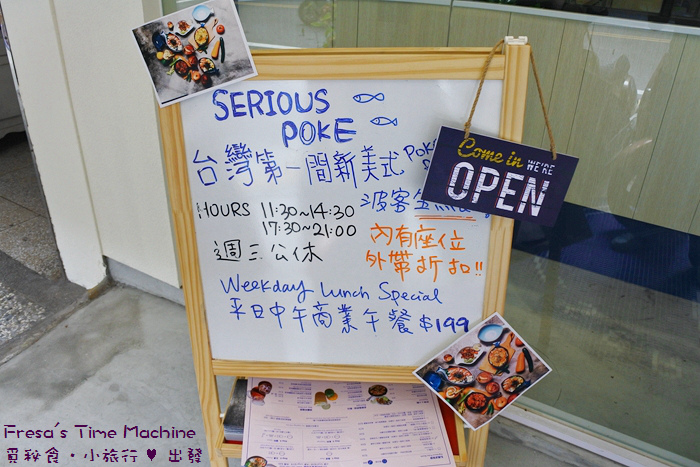 SERIOUS
POKE
台灣第一間新美式
Come in WE'RE
OPEN
HOURS 11:30~14:30
17:30~21:00
週三公休
波客
內有座位
外帶折扣!!
Weekday Lunch Special
平日中午商業午餐 $199
Fresa's Time Machine
覓秘食・小旅行 ♥ 出發